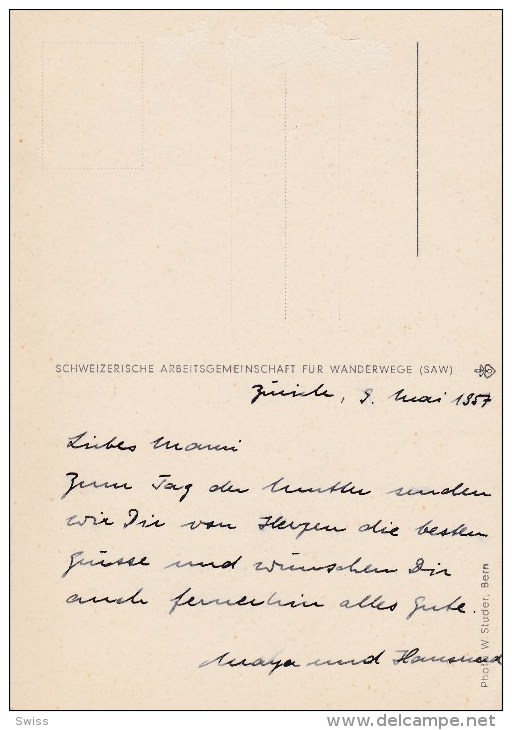 SCHWEIZERISCHE ARBEITSGEMEINSCHAFT FÜR WANDERWEGE (SAW)
Zürich, 9. Mai 1957
Liebes Mami
Zum Tag der Mutter senden
wir Dir von Herzen die besten
Grüsse und wünschen Dir
auch fernerhin alles Gute.
Maya und Hansruedi
Photo W. Studer, Bern
Swiss
www.delcampe.net